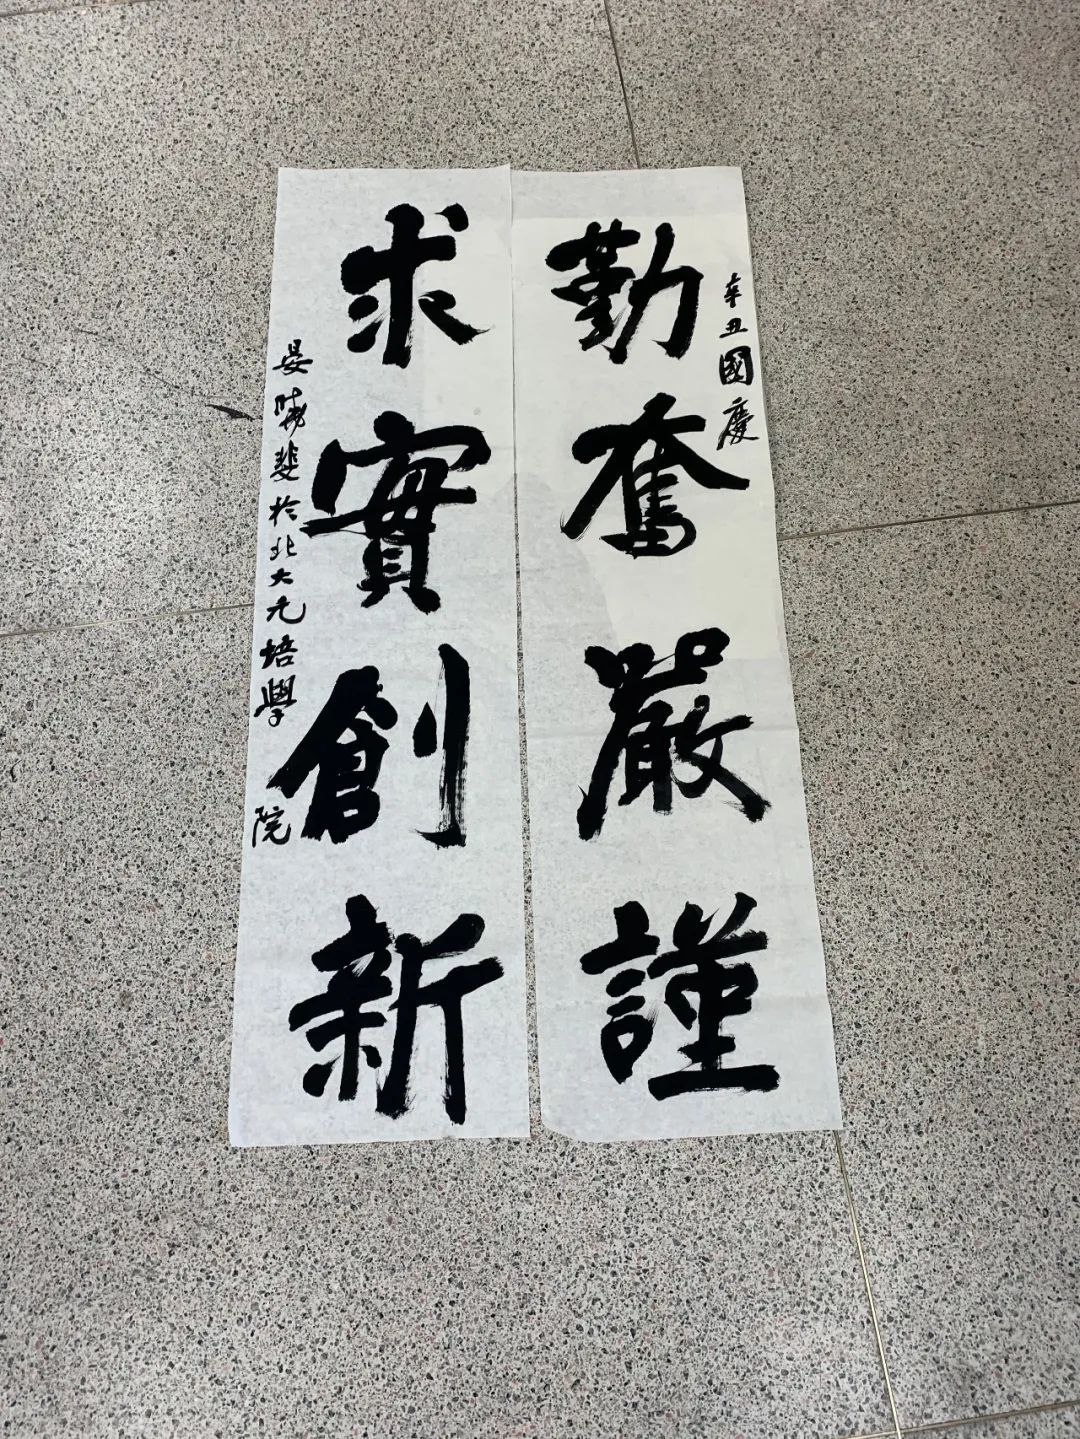 辛丑國慶
勤奮嚴謹
求實創新
晏曉斐於北大元培學院